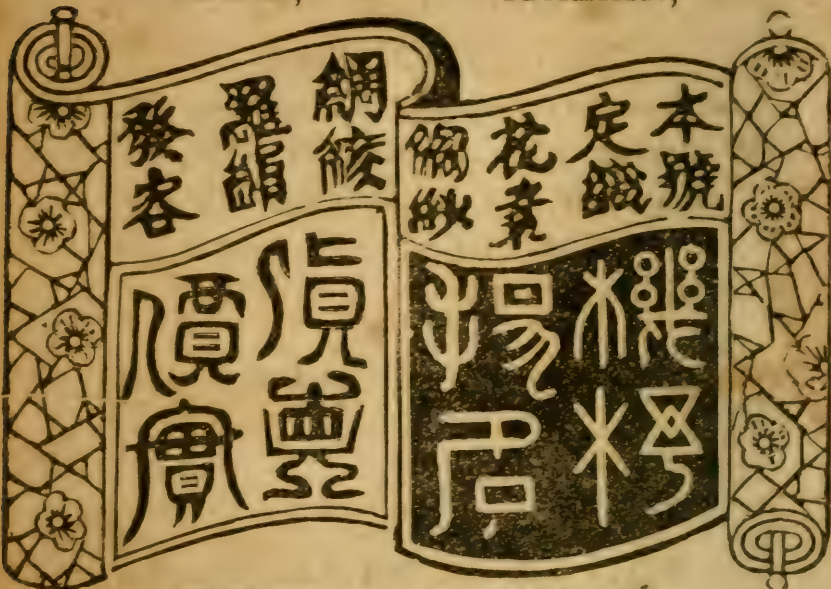 本號
定織
花素
縐紗
綢綾
羅絹
發客
機杼
揚名
貨眞
價實